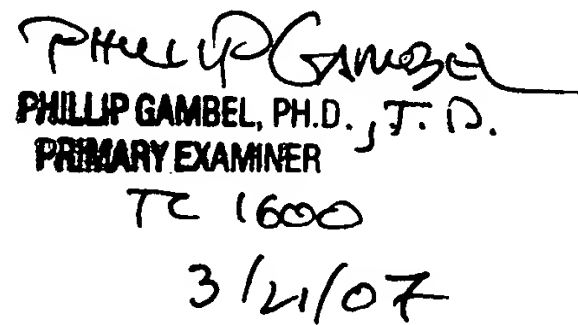 PHILLIP GAMBEL
PHILLIP GAMBEL, PH.D., J.D.
PRIMARY EXAMINER
TC 1600
3/21/07